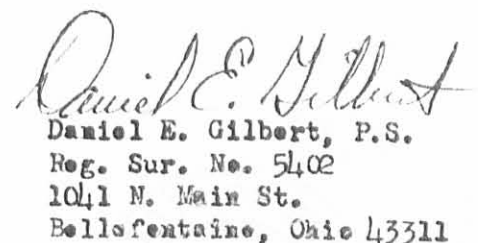 Daniel E. Gilbert
Daniel E. Gilbert, P.S.
Reg. Sur. No. 5402
1041 N. Main St.
Bellefontaine, Ohio 43311